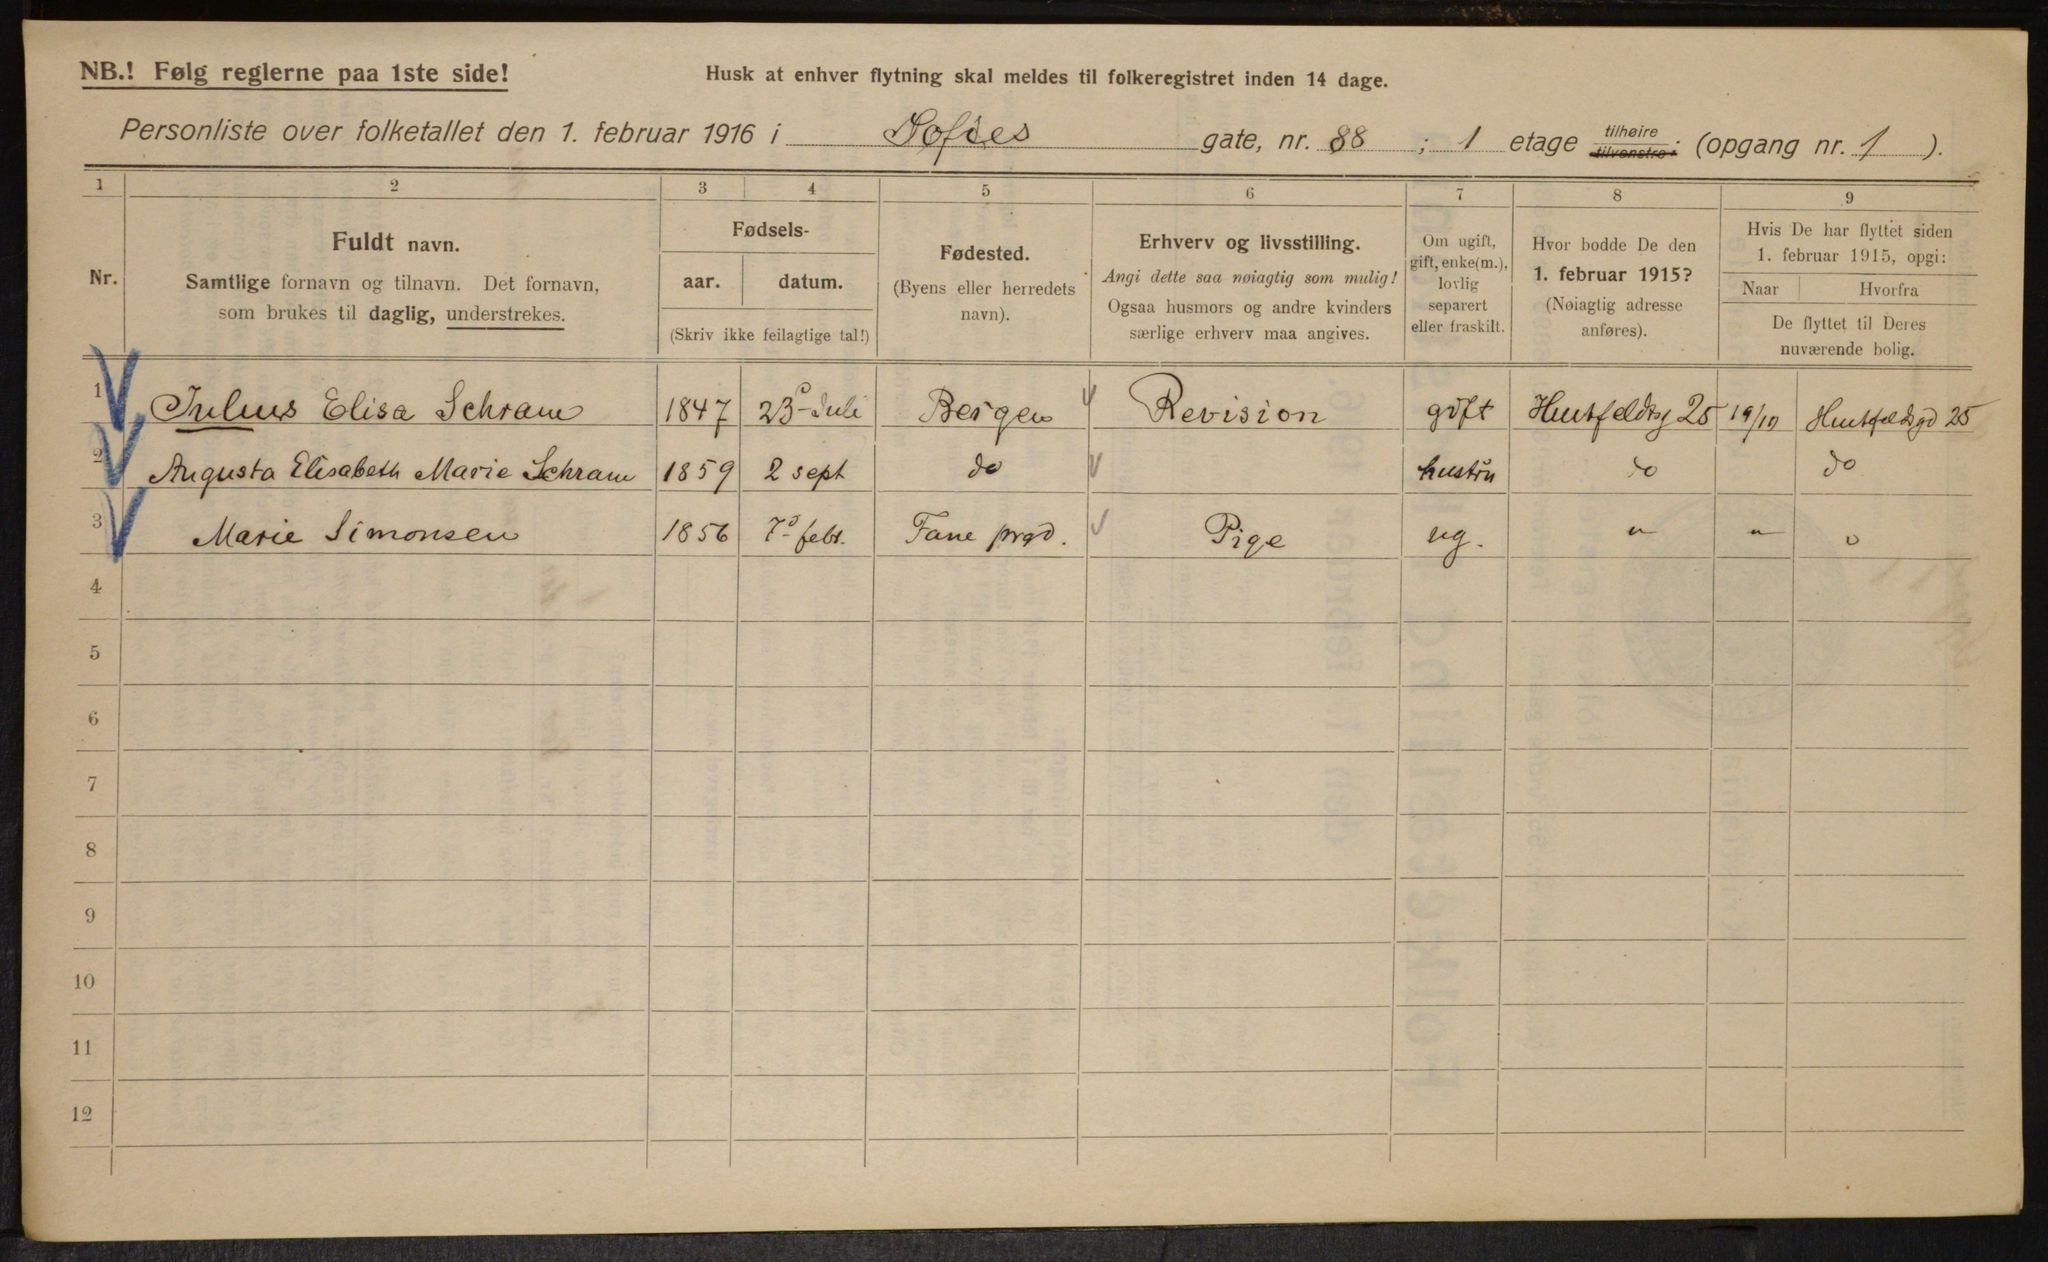 NB.! Følg reglerne paa 1ste side!
Husk at enhver flytning skal meldes til folkeregistret inden 14 dage.
Personliste over folketallet den 1. februar 1916 i Sofies gate, nr. 88 ; 1 etage tilhøire tilvenstre: (opgang nr. 1 ).
1 2 3 4 5 6 7 8 9
Nr.
Fuldt navn.
Samtlige fornavn og tilnavn. Det fornavn,
som brukes til daglig, understrekes.
Fødsels-
aar. datum.
(Skriv ikke feilagtige tal!)
Fødested.
(Byens eller herredets
navn).
Erhverv og livsstilling.
Angi dette saa nøiagtig som mulig!
Ogsaa husmors og andre kvinders
særlige erhverv maa angives.
Om ugift,
gift, enke(m.),
lovlig
separert
eller fraskilt.
Hvor bodde De den
1. februar 1915?
(Nøiagtig adresse
anføres).
Hvis De har flyttet siden
1. februar 1915, opgi:
Naar Hvorfra
De flyttet til Deres
nuværende bolig.
1 Julius Elisa Schram 1847 23 Juli Bergen Revision gift Huitfeldtsg 25 19/10 Huitfeldsgd 25
2 Augusta Elisabeth Marie Schram 1859 2 sept do hustru do do
3 Marie Simonsen 1856 7 febr. Fane prgd. Pige ug. " " "
4
5
6
7
8
9
10
11
12